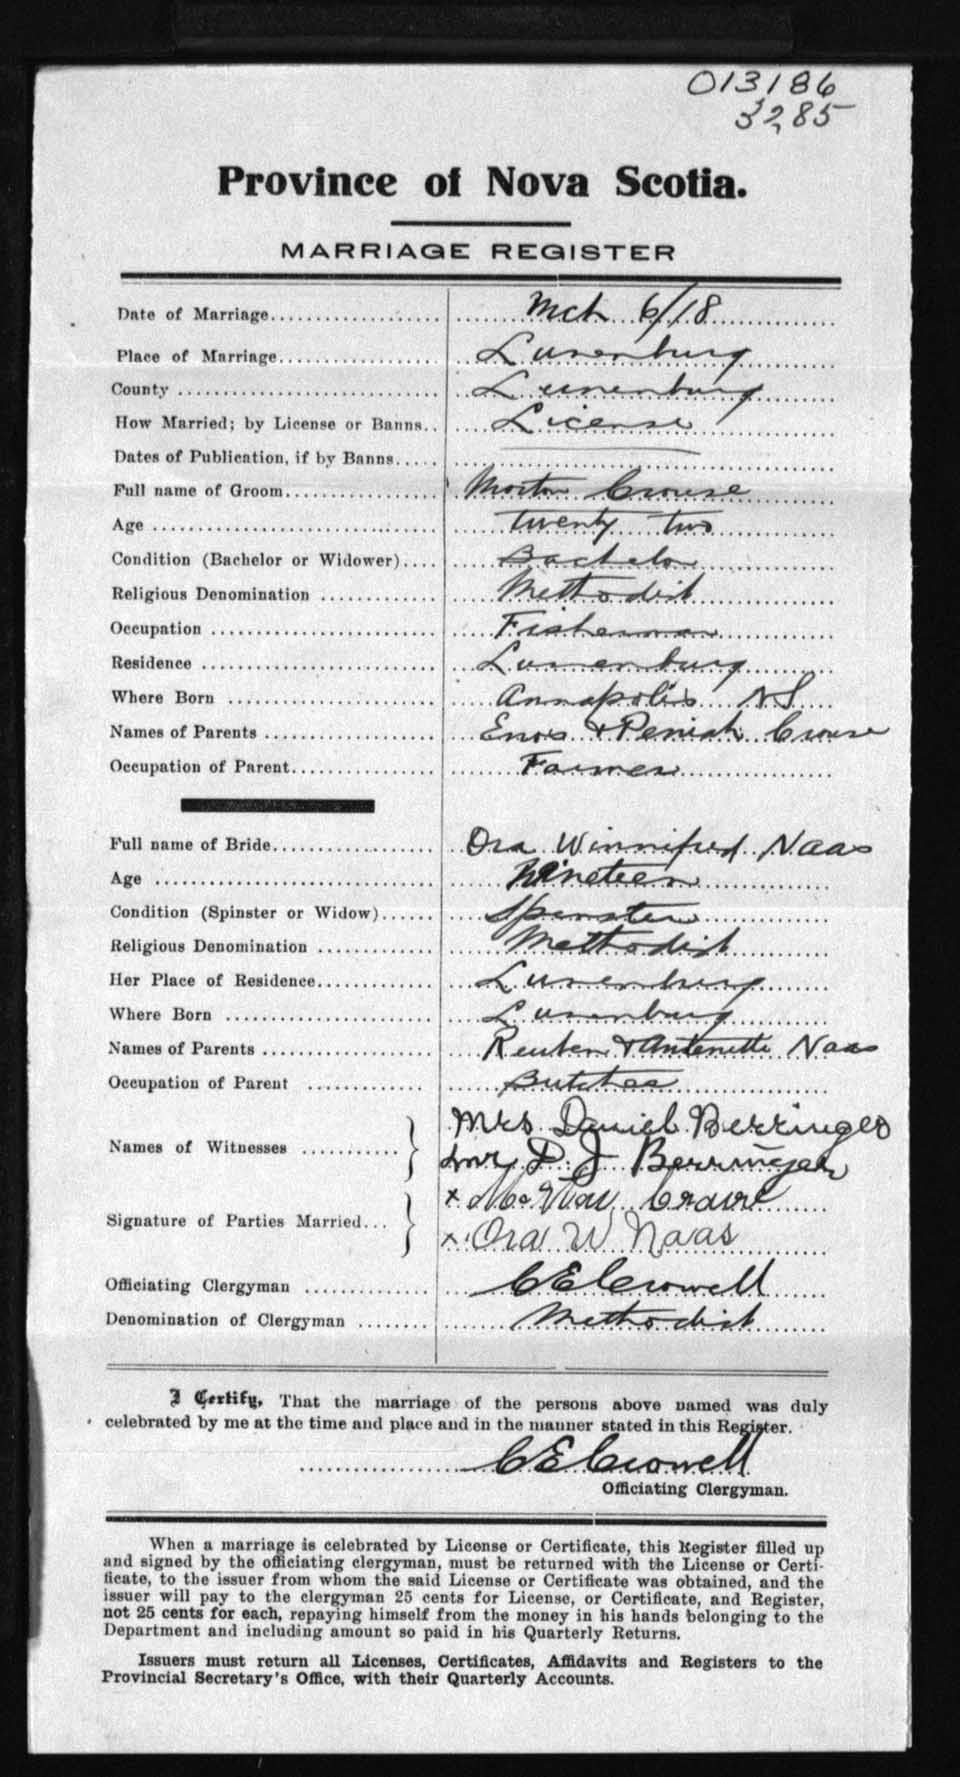 013186
3285
Province of Nova Scotia.
MARRIAGE REGISTER
Date of Marriage.................... Mch 6/18
Place of Marriage................... Lunenburg
County ............................. Lunenburg
How Married; by License or Banns.. License
Dates of Publication, if by Banns.....
Full name of Groom.................. Morton Crouse
Age ................................ twenty two
Condition (Bachelor or Widower).... Bachelor
Religious Denomination ............. Methodist
Occupation ......................... Fisherman
Residence .......................... Lunenburg
Where Born ......................... Annapolis NS
Names of Parents ................... Enos & Peniah Crouse
Occupation of Parent................ Farmer
Full name of Bride.................. Ora Winnifred Naas
Age ................................ Nineteen
Condition (Spinster or Widow)...... Spinster
Religious Denomination ............. Methodist
Her Place of Residence............. Lunenburg
Where Born ......................... Lunenburg
Names of Parents ................... Reuben & Antenette Naas
Occupation of Parent ............. Butcher
Names of Witnesses ........... Mrs Daniel Berringer
D J Berringer
Signature of Parties Married... x
x Ora W Naas
Officiating Clergyman ............. C E Crowell
Denomination of Clergyman ........ Methodist
I Certify, That the marriage of the persons above named was duly
celebrated by me at the time and place and in the manner stated in this Register.
C E Crowell
Officiating Clergyman.
When a marriage is celebrated by License or Certificate, this Register filled up
and signed by the officiating clergyman, must be returned with the License or Certi-
ficate, to the issuer from whom the said License or Certificate was obtained, and the
issuer will pay to the clergyman 25 cents for License, or Certificate, and Register,
not 25 cents for each, repaying himself from the money in his hands belonging to the
Department and including amount so paid in his Quarterly Returns.
Issuers must return all Licenses, Certificates, Affidavits and Registers to the
Provincial Secretary's Office, with their Quarterly Accounts.